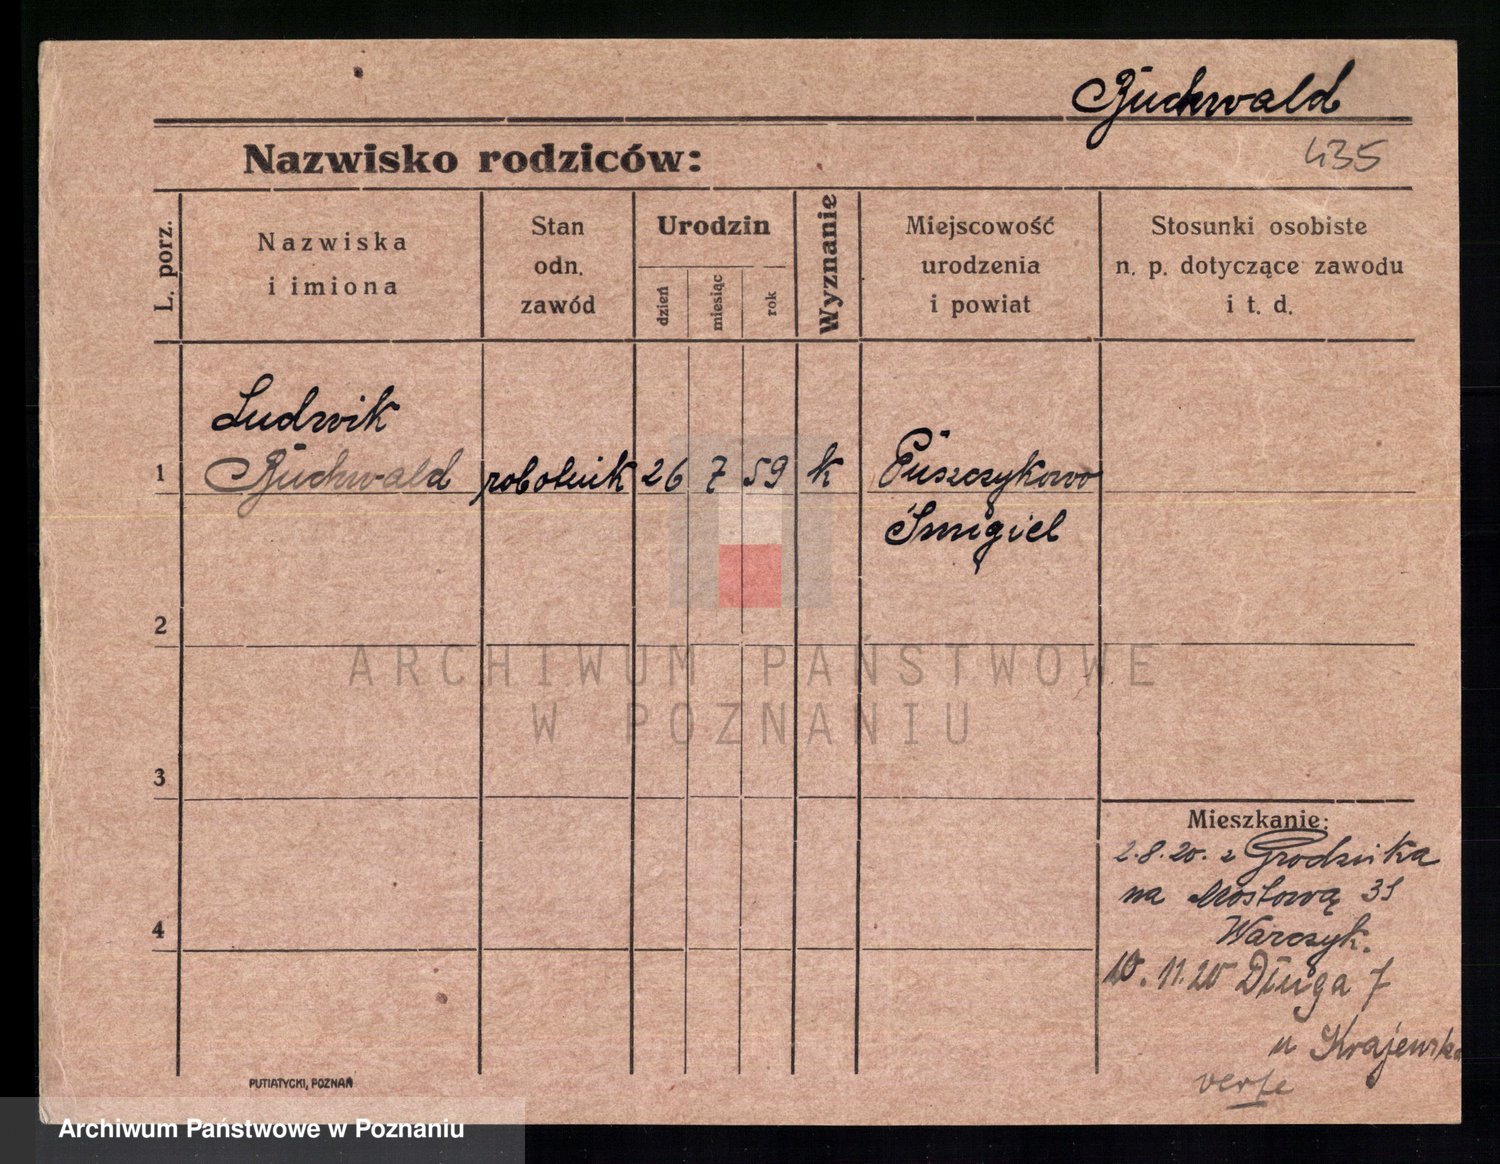 Buchwald
435
Nazwisko rodziców:
L. porz.
Nazwiska
i imiona
Stan
odn.
zawód
Urodzin
dzień
miesiąc
rok
Wyznanie
Miejscowość
urodzenia
i powiat
Stosunki osobiste
n. p. dotyczące zawodu
i t. d.
Ludwik
1 Buchwald robotnik 26 7 59 k Puszczykowo
Śmigiel
2
3
4
ARCHIWUM PAŃSTWOWE
W POZNANIU
Mieszkanie:
2.8.20. z Grodziska
na Mostową 31
Warczyk.
10.11.20 Długa 7
u Krajewska
verte
PUTIATYCKI, POZNAŃ
Archiwum Państwowe w Poznaniu